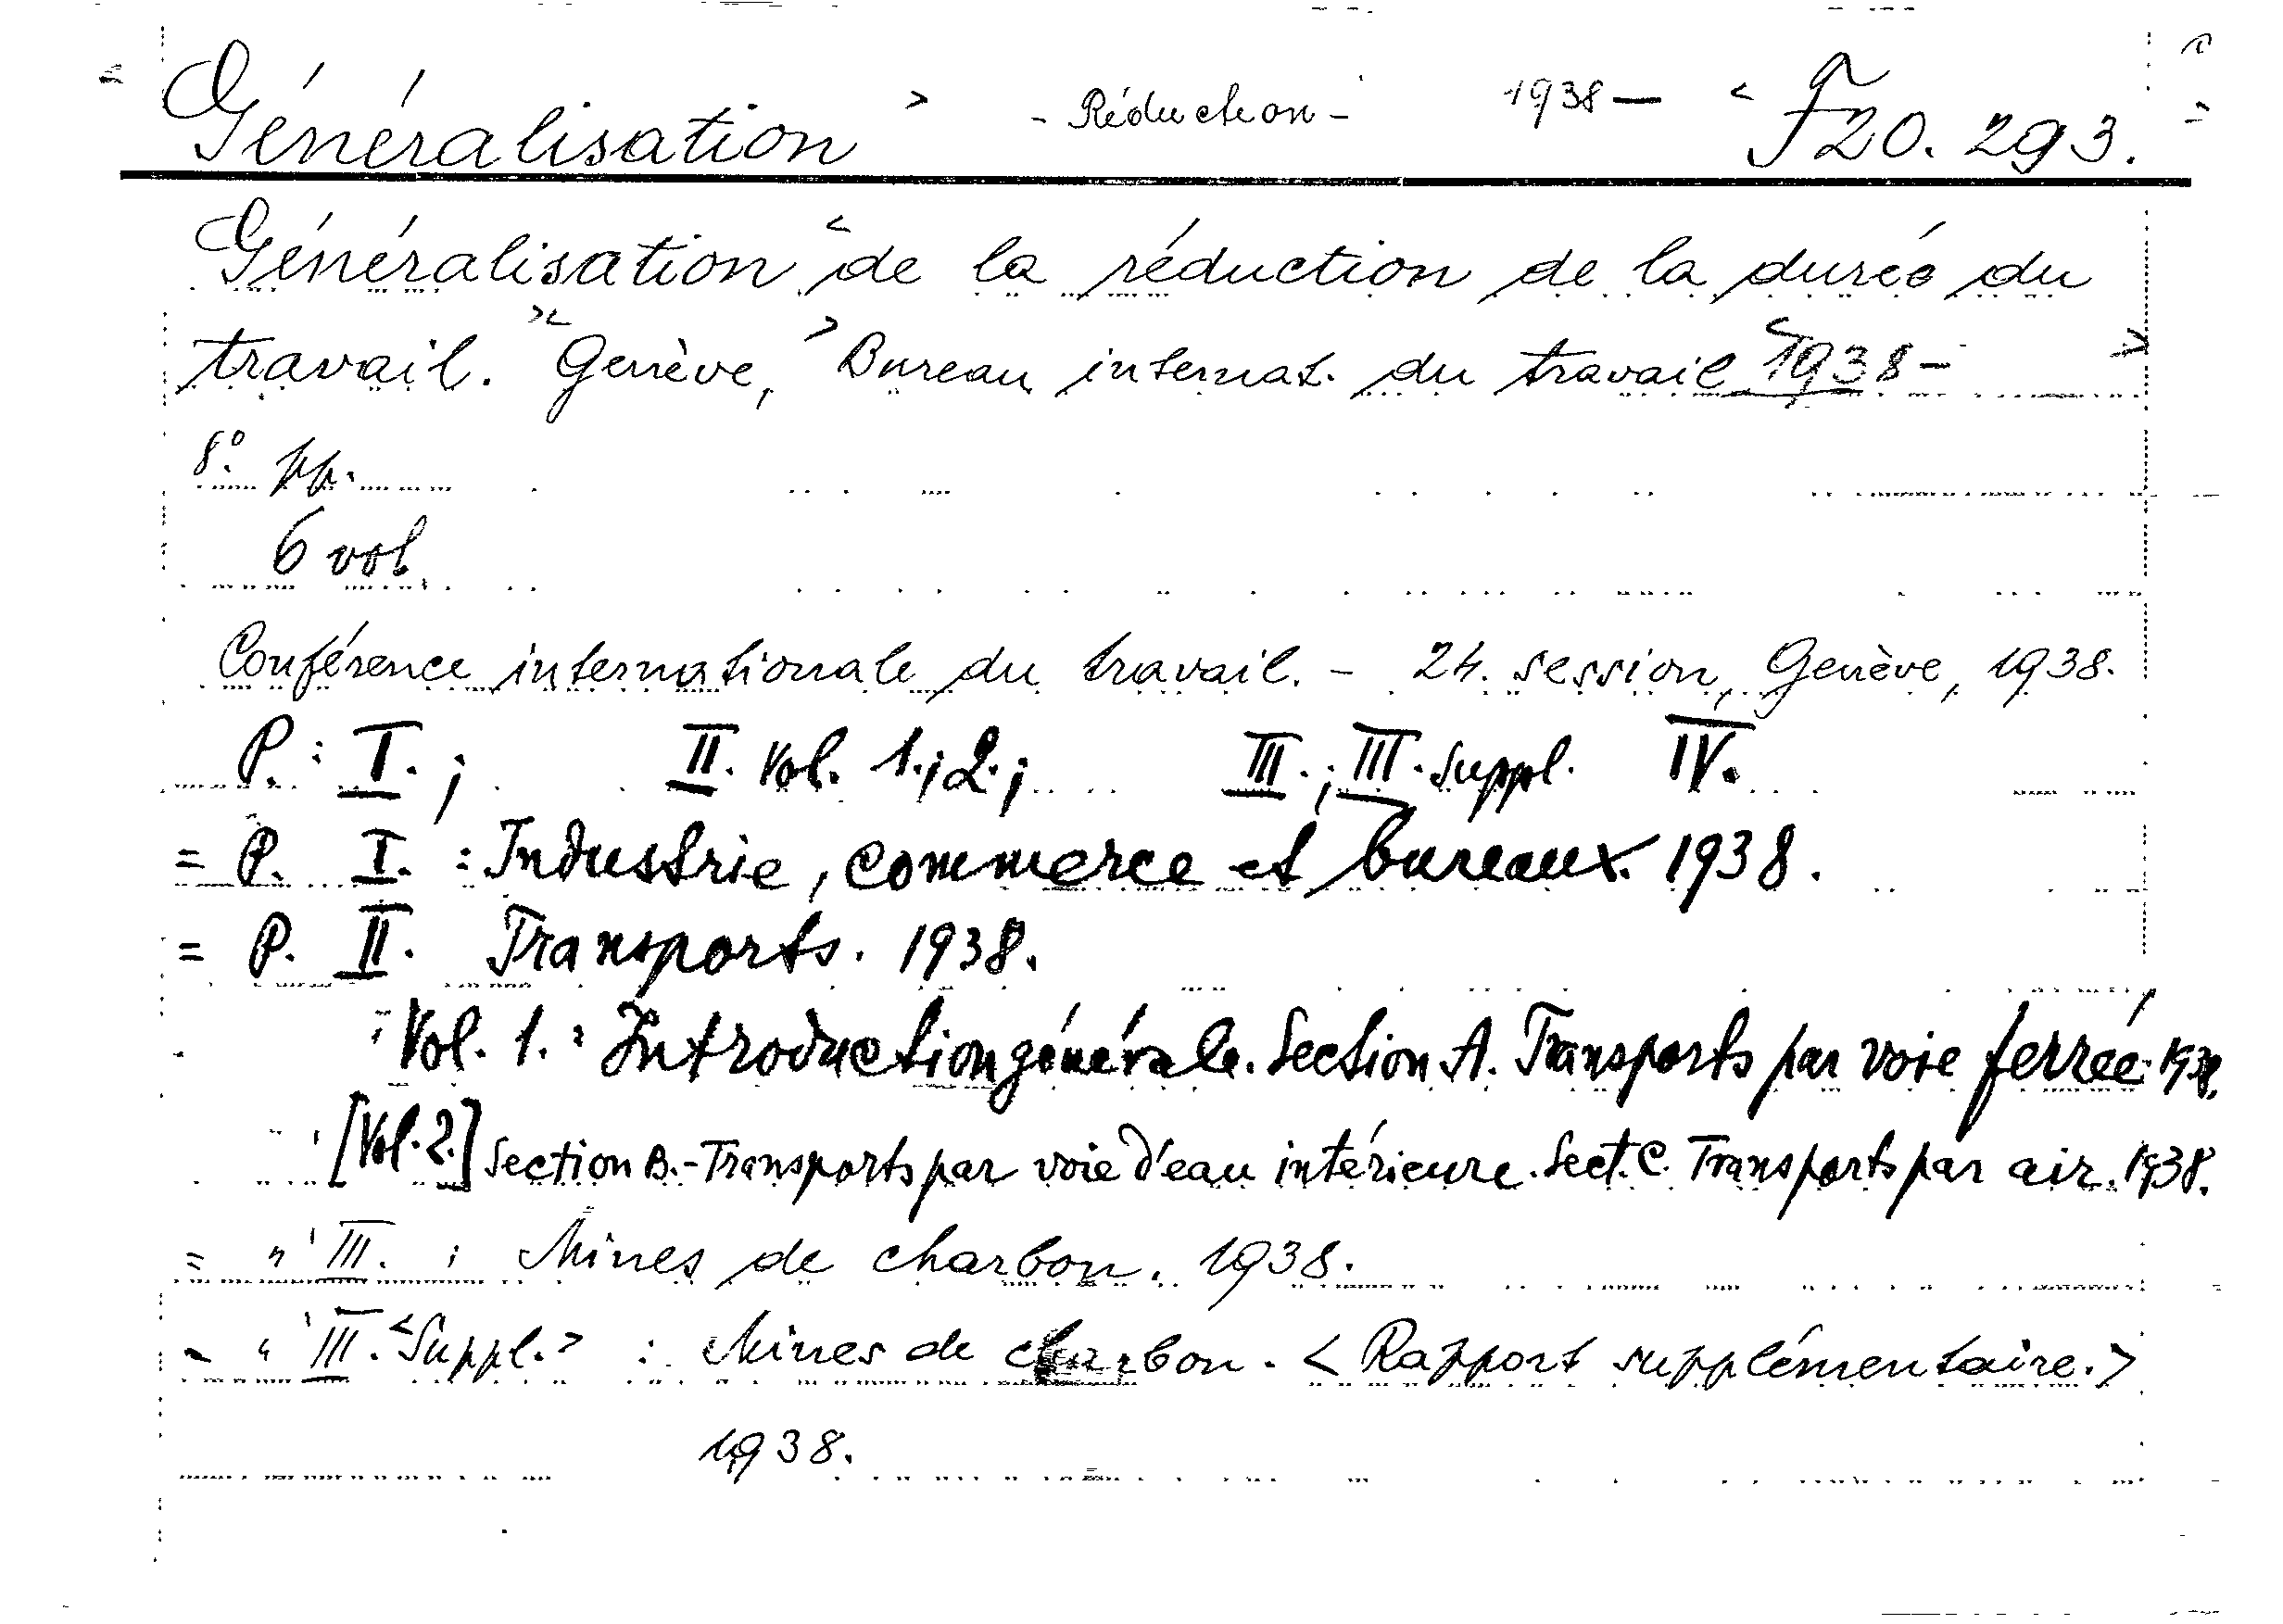 Généralisation > - Réduction - 1938 — < F20.293.
Généralisation < de la réduction de la durée du
travail. >< Genève, > Bureau internat. du travail < 1938 - >
8°. pp.
6 vol.
Conférence internationale du travail. - 24. session, Genève, 1938.
P. : I. ; II. Vol. 1.; 2.; III. ; III. Suppl. IV.
= P. I. : Industrie, commerce et bureaux. 1938.
= P. II. Transports. 1938.
: Vol. 1. : Introduction générale. Section A. Transports par voie ferrée. 1938.
[Vol. 2.] Section B. - Transports par voie d'eau intérieure. Sect. C. Transports par air. 1938.
= " III. : Mines de charbon. 1938.
= " III. <Suppl.> : Mines de charbon. < Rapport supplémentaire. >
1938.